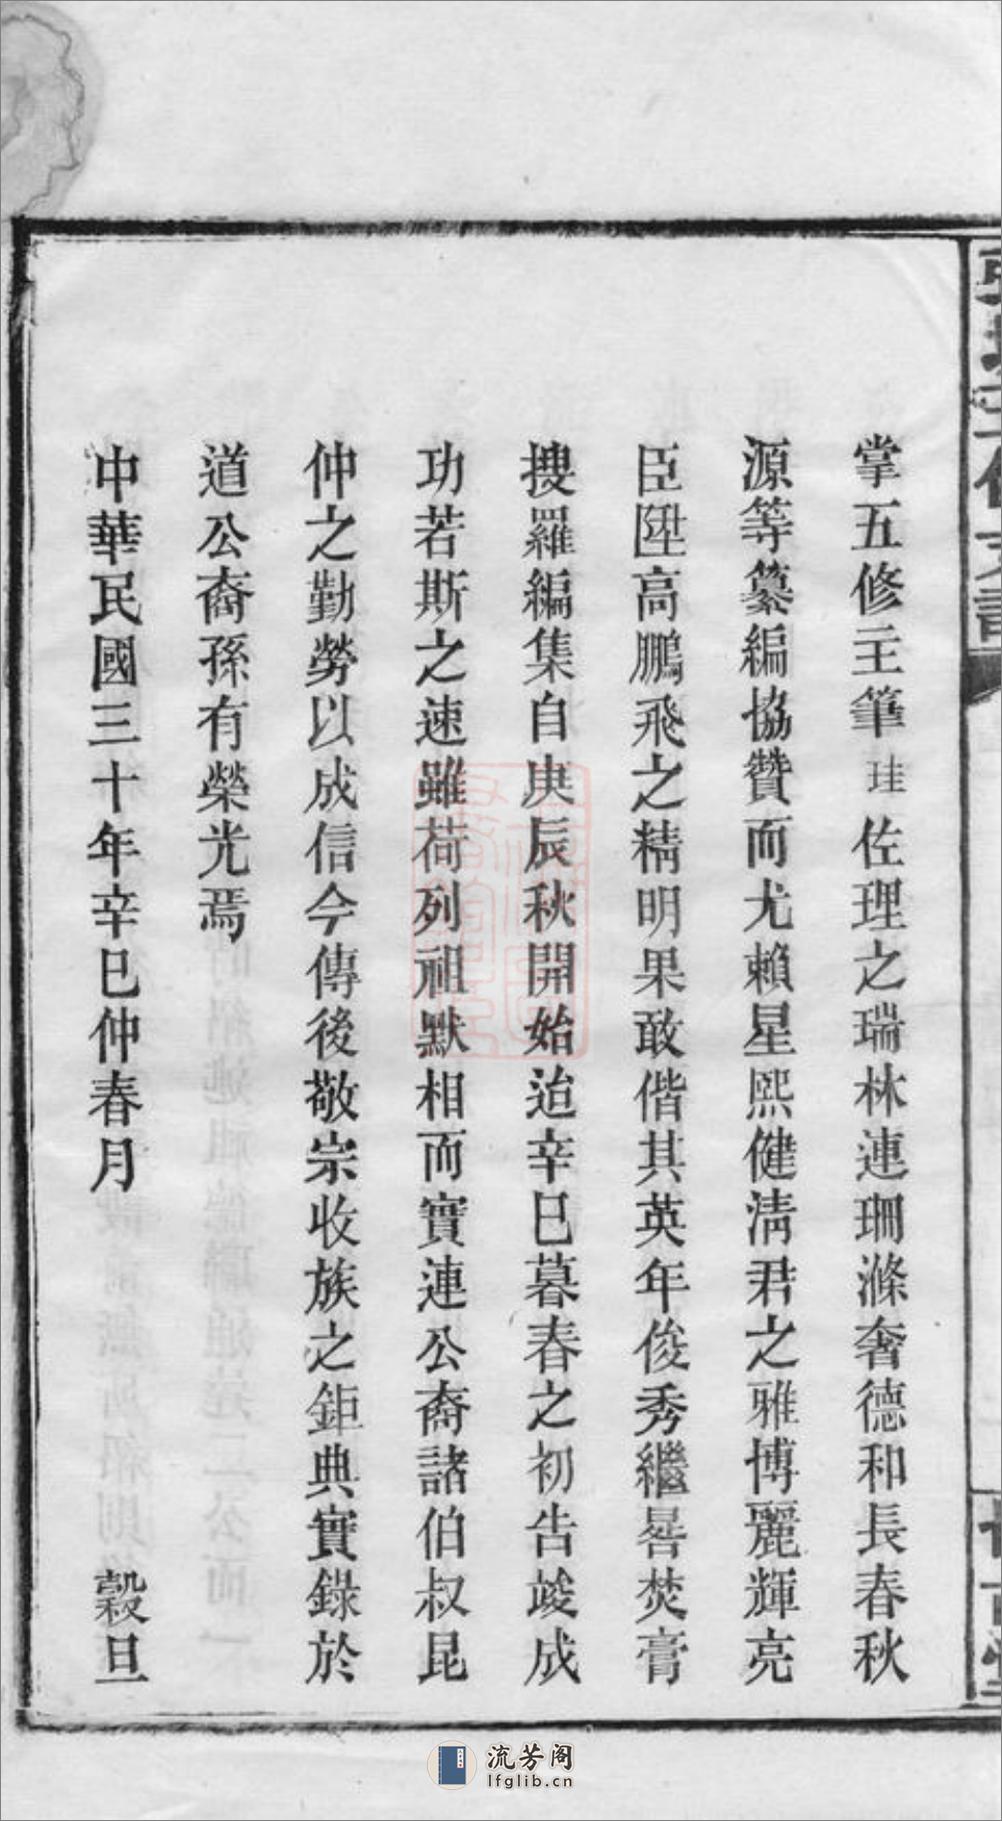 掌五修主筆珪佐理之瑞林連珊滌奢德和長春秋
源等纂編協贊而尤賴星熙健淸君之雅博麗輝亮
臣陞高鵬飛之精明果敢偕其英年俊秀繼晷焚膏
搜羅編集自庚辰秋開始迨辛巳暮春之初告竣成
功若斯之速雖荷列祖默相而實連公裔諸伯叔昆
仲之勤勞以成信今傳後敬宗收族之鉅典實錄於
道公裔孫有榮光焉
中華民國三十年辛巳仲春月 穀旦
流芳阁
lfglib.cn